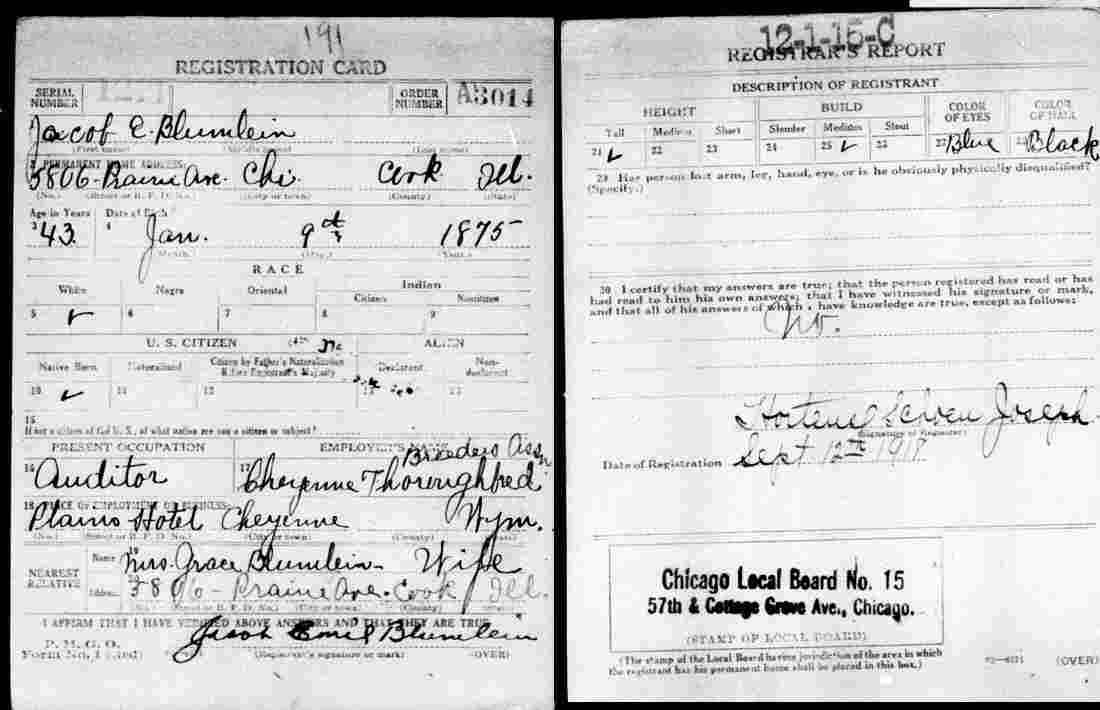 191
REGISTRATION CARD
SERIAL NUMBER
ORDER NUMBER A3014
Jacob E. Blumlein
(First name) (Middle name) (Last name)
PERMANENT HOME ADDRESS:
5806 Ave. Chi. Cook Ill.
(No.) (Street or R. F. D. No.) (City or town) (County) (State)
Age in Years Date of Birth
3 43 4 Jan. 9th 1875
(Month.) (Day.) (Year.)
RACE
White Negro Oriental Indian
Citizen Noncitizen
5 ✓ 6 7 8 9
U. S. CITIZEN ALIEN
Native Born Naturalized Citizen by Father's Naturalization Before Registrant's Majority Declarant Non-declarant
10 ✓ 11 12 13
15
If not a citizen of the U. S., of what nation are you a citizen or subject?
PRESENT OCCUPATION EMPLOYER'S NAME
Breeders Assn
16 Auditor 17 Cheyenne Thoroughbred
18 PLACE OF EMPLOYMENT OR BUSINESS:
Plains Hotel Cheyenne Wym.
(No.) (Street or R. F. D. No.) (City or town) (County) (State)
NEAREST RELATIVE
Name 19 Mrs. Grace Blumlein - Wife
Address 20 5806 - Ave. Cook Ill.
(No.) (Street or R. F. D. No.) (City or town) (County) (State)
I AFFIRM THAT I HAVE VERIFIED ABOVE ANSWERS AND THAT THEY ARE TRUE
P. M. G. O.
Form No. 1 (Red)
Jacob Emil Blumlein
(Registrant's signature or mark) (OVER)
12-1-15-C
REGISTRAR'S REPORT
DESCRIPTION OF REGISTRANT
HEIGHT BUILD COLOR OF EYES COLOR OF HAIR
Tall Medium Short Slender Medium Stout
21 ✓ 22 23 24 25 ✓ 26 27 Blue 28 Black
29 Has person lost arm, leg, hand, eye, or is he obviously physically disqualified?
(Specify.)
30 I certify that my answers are true; that the person registered has read or has
had read to him his own answers; that I have witnessed his signature or mark,
and that all of his answers of which I have knowledge are true, except as follows:
No.
Joseph
(Signature of Registrar)
Date of Registration Sept 12th 1918
Chicago Local Board No. 15
57th & Cottage Grove Ave., Chicago.
(STAMP OF LOCAL BOARD)
(The stamp of the Local Board having jurisdiction of the area in which
the registrant has his permanent home shall be placed in this box.)
(OVER)